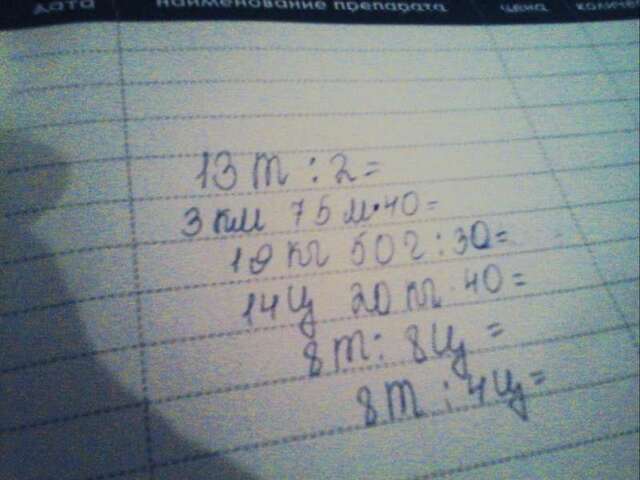 дата наименование препарата цена
13 т : 2 =
3 км 75 м · 40 =
19 кг 50 г : 30 =
14 ц 20 кг · 40 =
8 т : 8 ц =
8 т : 4 ц =